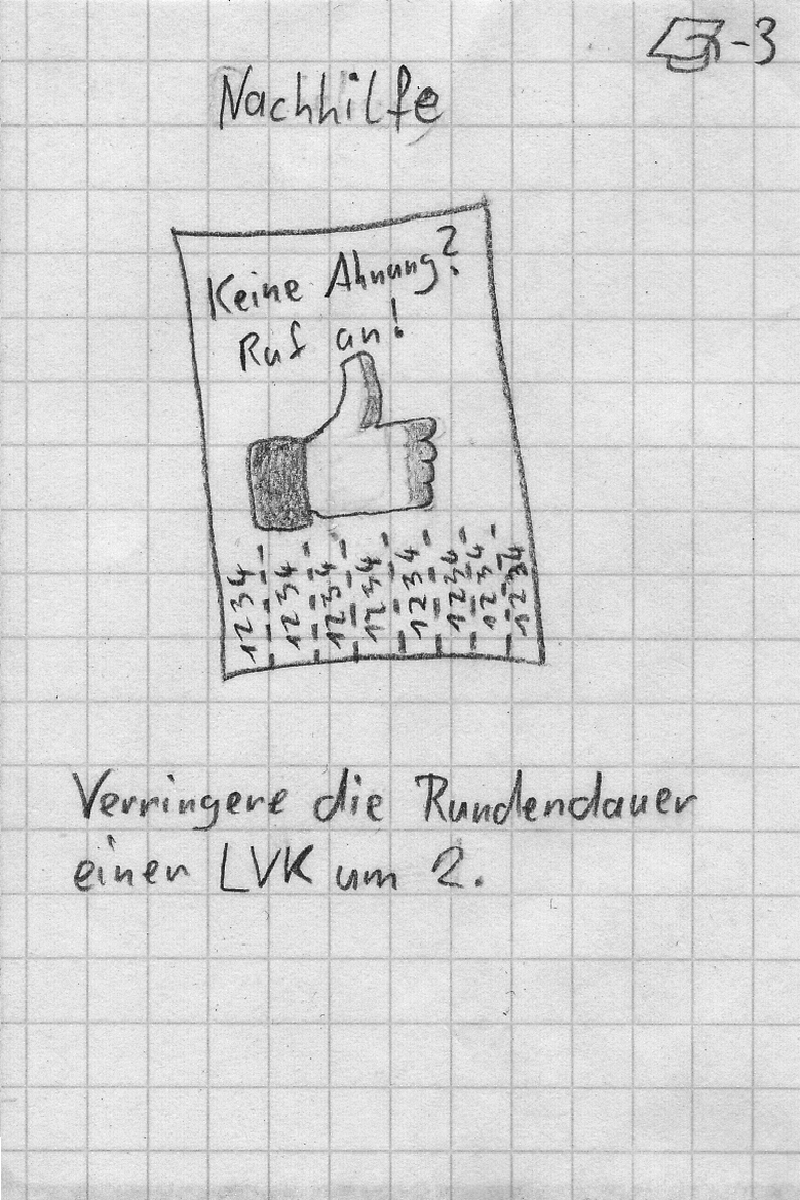 -3
Nachhilfe
Keine Ahnung?
Ruf an!
1234 1234 1234 1234 1234 1234 1234 1234
Verringere die Rundendauer
einer LVK um 2.